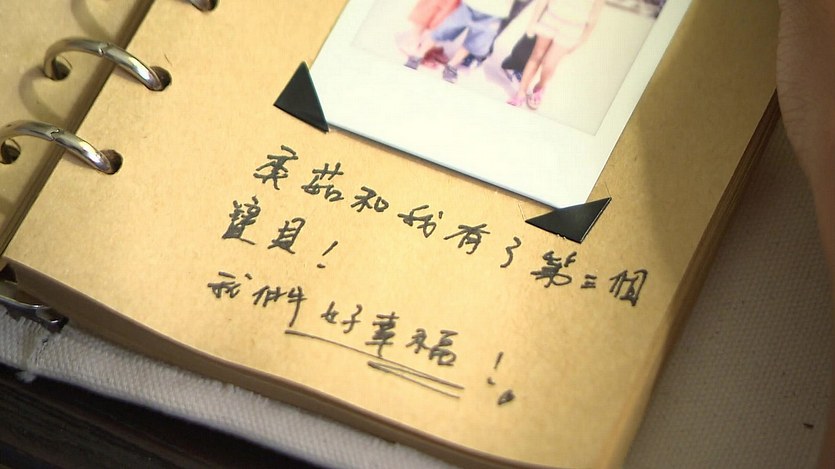 茹和我有了第三個
寶貝！
我們好幸福！